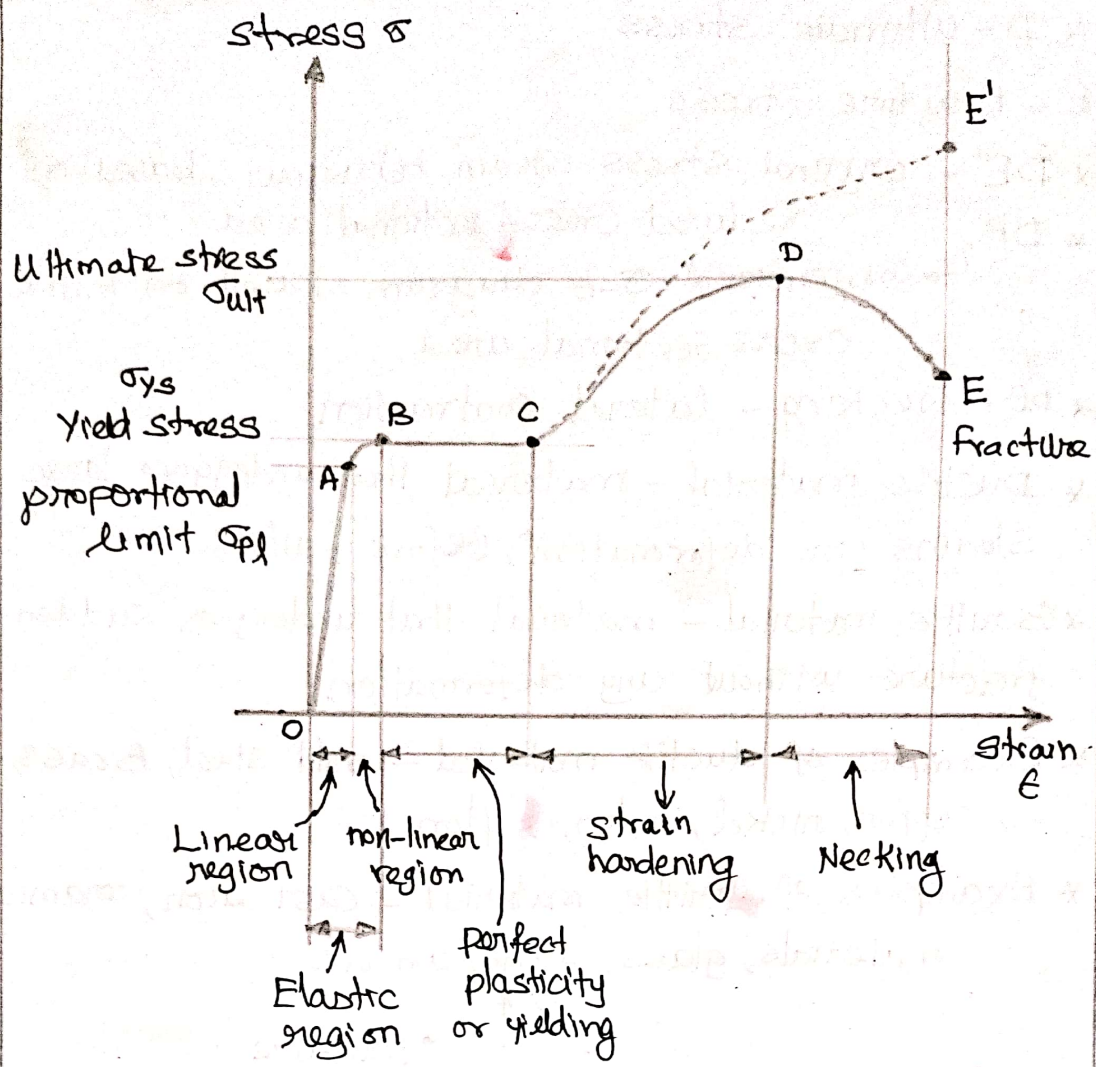 Stress σ
E'
Ultimate stress
σult
D
σys
Yield stress
B
C
E
fracture
A
proportional
limit σpl
O
Strain
ε
Linear
region
non-linear
region
strain
hardening
Necking
perfect
plasticity
or yielding
Elastic
region